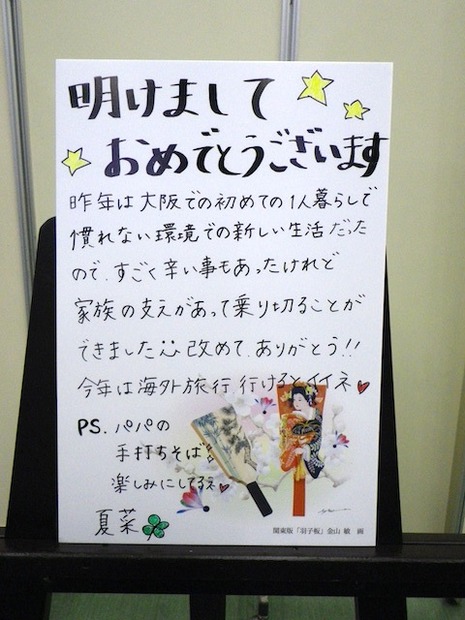 明けまして
おめでとうございます
昨年は大阪での初めての1人暮らしで
慣れない環境での新しい生活だった
ので、すごく辛い事もあったけれど
家族の支えがあって乗り切ることが
できました 改めて、ありがとう!!
今年は海外旅行 行けるとイイネ♥
PS. パパの
手打ちそば
楽しみにしてるネ♥
夏菜
関東版「羽子板」金山 敏 画